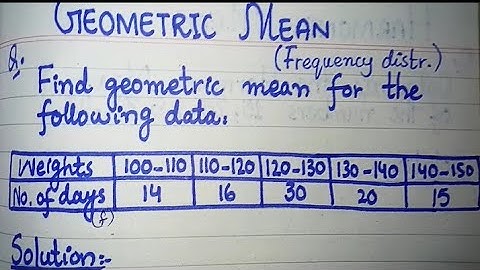 GEOMETRIC MEAN
(Frequency distr.)
Q:
Find geometric mean for the
following data.
Weights 100-110 110-120 120-130 130-140 140-150
No. of days 14 16 30 20 15
(f)
Solution:-